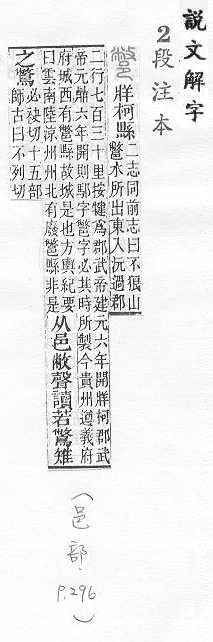 說文解字
2段注本
鄨 牂柯縣
二志同前志曰不狼山
鄨水所出東入沅過郡
二行七百三十里按犍爲郡武帝建元六年開牂柯郡武
帝元鼎六年開則字鄨字必其時所製今貴州遵義府
府城西有鄨縣故城是也方輿紀要
曰雲南陸涼州州北有廢鄨縣非是
从邑敝聲讀若鷩雉
之鷩
必袂切十五部
師古曰不列切
(邑部.P.296)